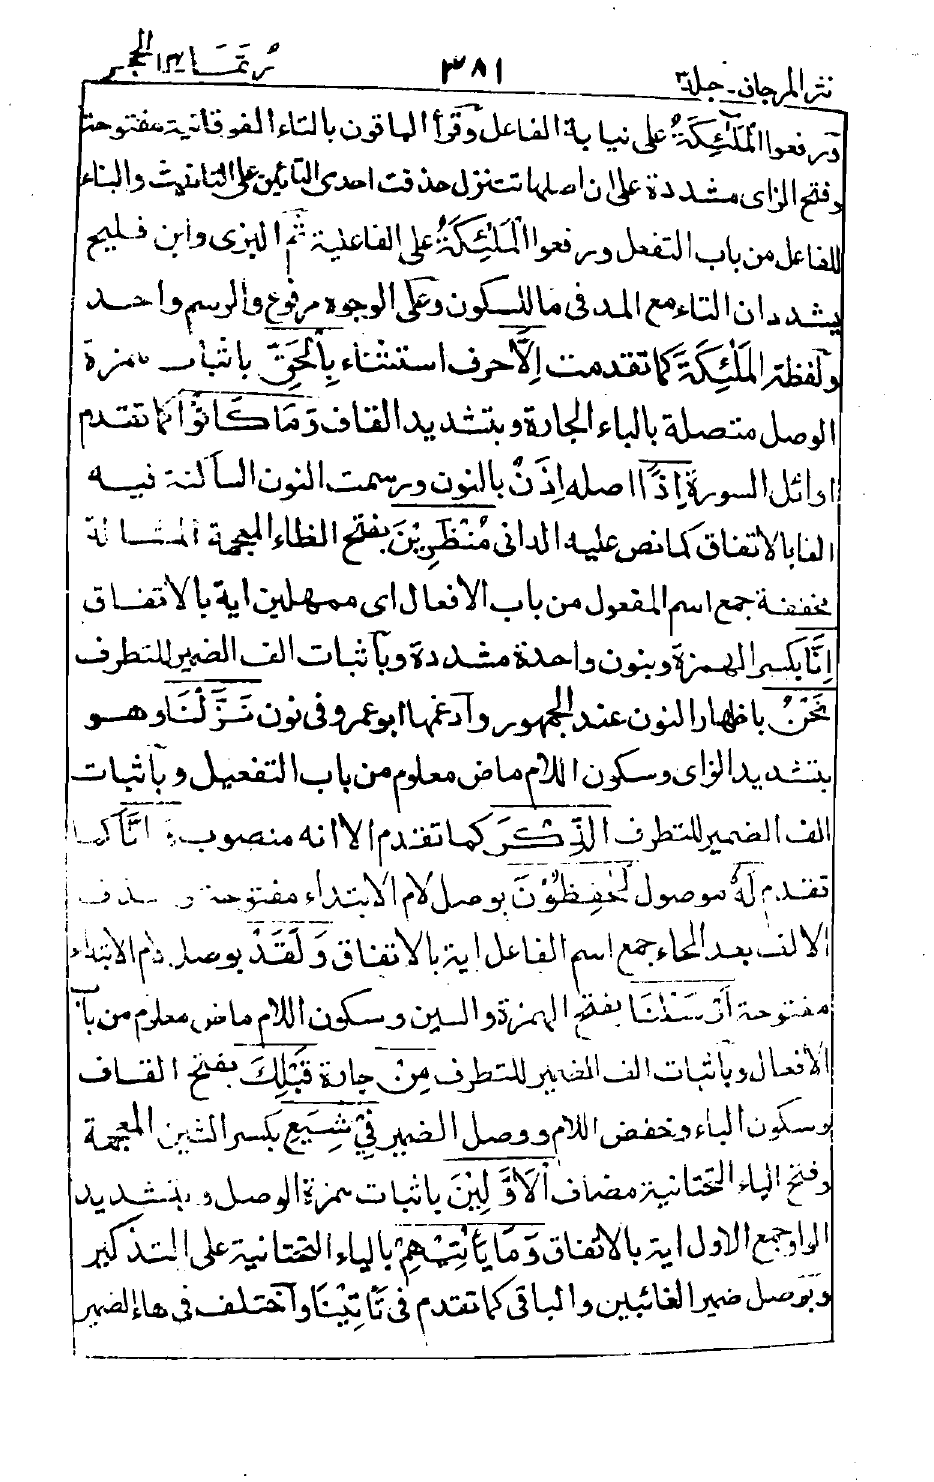 نثر المرجان - جلد ٣
٣٨١
ربما ١٤ الحجر
ورفعوا الْمَلٰٓئِكَةُ على نيابة الفاعل وقرأ الباقون بالتاء الفوقانية مفتوحة
وفتح الزاى مشددة على ان اصلها تتنزل حذفت احدى التائين على التانيث والبناء
للفاعل من باب التفعل ورفعوا الْمَلٰٓئِكَةُ على الفاعلية ثم البزى وابن فليح
يشددان التاء مع المد فى ما للسكون وعلى الوجوه مرفوع والرسم واحد
ولفظة الْمَلٰٓئِكَةَ كما تقدمت اِلَّا حرف استثناء بِالْحَقِّ باثبات همزة
الوصل متصلة بالباء الجارة وبتشديد القاف وَمَا كَانُوْٓا كما تقدم
اوائل السورة اِذًا اصله اِذَنْ بالنون ورسمت النون الساكنة فيه
الفا بالاتفاق كما نص عليه الدانى مُنْظَرِيْنَ بفتح الظاء المعجمة المشالة
مخففة جمع اسم المفعول من باب الافعال اى ممهلين اية بالاتفاق
اِنَّا بكسر الهمزة وبنون واحدة مشددة وبآثبات الف الضمير للتطرف
نَحْنُ باظهار النون عند الجمهور وآدغمها ابو عمرو فى نون نَزَّلْنَا وهو
بتشديد الزاى وسكون اللام ماض معلوم من باب التفعيل وبآثبات
الف الضمير للتطرف الذِّكْرَ كما تقدم الا انه منصوب وَاِنَّا كما
تقدم لَهٗ موصول لَحٰفِظُوْنَ بوصل لام الابتداء مفتوحة وحذف
الالف بعد الحاء جمع اسم الفاعل اية بالاتفاق وَلَقَدْ بوصل لام الابتداء
مفتوحة اَرْسَلْنَا بفتح الهمزة والسين وسكون اللام ماض معلوم من باب
الافعال وبآثبات الف الضمير للتطرف مِنْ جارة قَبْلِكَ بفتح القاف
وسكون الباء وخفض اللام ووصل الضمير فِيْ شِيَعِ بكسر الشين المعجمة
وفتح الياء التحتانية مضاف الْاَوَّلِيْنَ باثبات همزة الوصل وبتشديد
الواو جمع الاول اية بالاتفاق وَمَا يَاْتِيْهِمْ بالياء التحتانية على التذكير
وبوصل ضمير الغائبين والباقى كما تقدم فى تَاْتِيْنَا وآختلف فى هاء الضمير